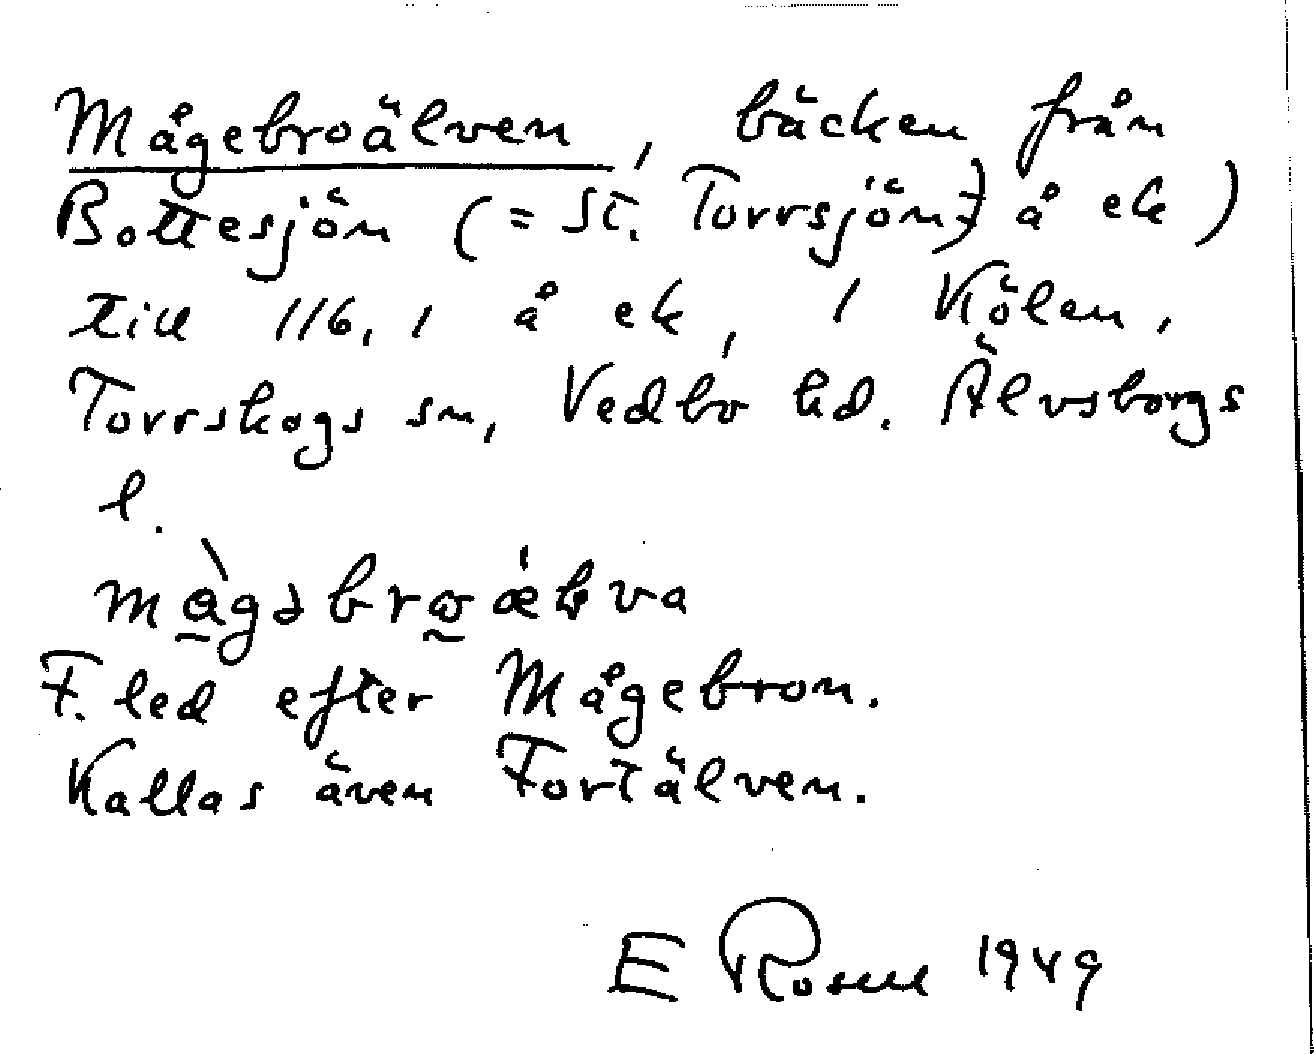 Mågebroälven, bäcken från
Bottesjön (= St. Torrsjön å ek)
till 116, 1 å ek, i Kölen,
Torrskogs sn, Vedbo hd. Älvsborgs
l.
F. led efter Mågebron.
Kallas även Fortälven.
E Rosell 1949